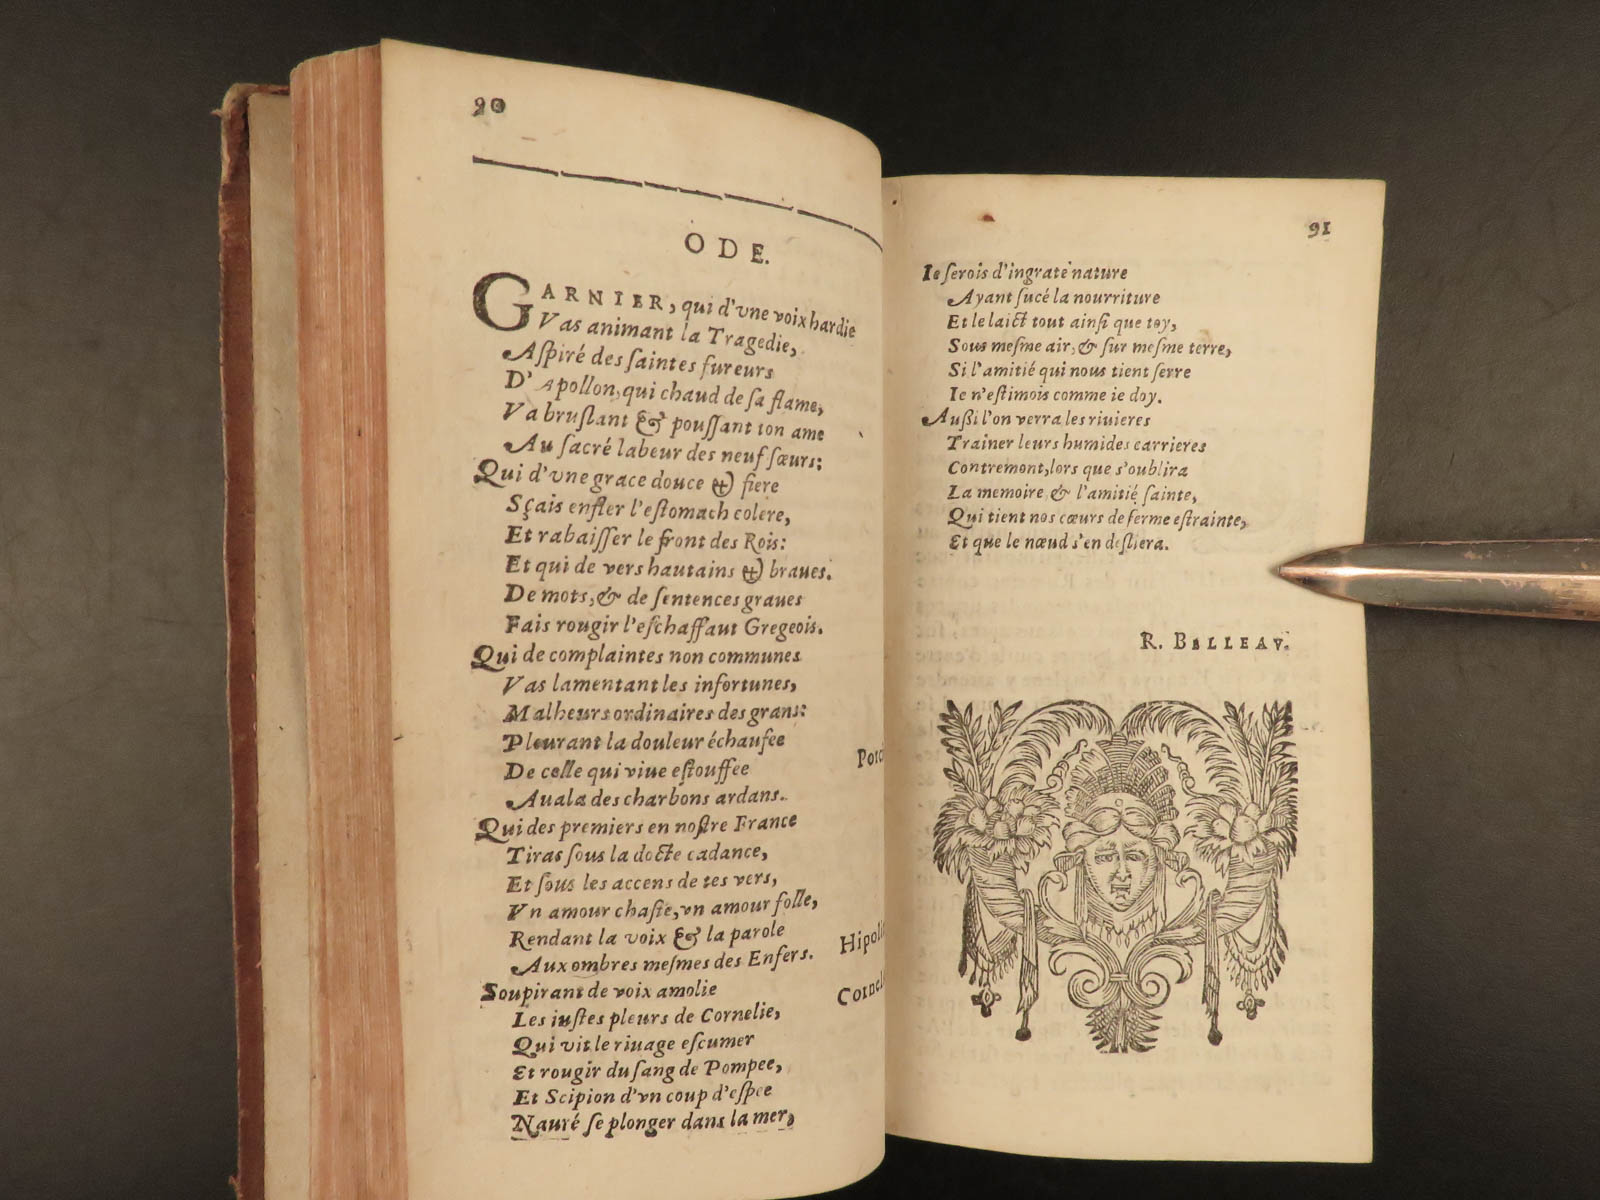 90
ODE.
GARNIER, qui d'vne voix hardie
Vas animant la Tragedie,
Aſpiré des ſaintes fureurs
D'Apollon, qui chaud de ſa flame,
Va bruſlant & pouſſant ton ame
Au ſacré labeur des neuf ſœurs:
Qui d'vne grace douce & fiere
Sçais enfler l'eſtomach colere,
Et rabaiſſer le front des Rois:
Et qui de vers hautains & braues.
De mots, & de ſentences graues
Fais rougir l'eſchaffaut Gregeois.
Qui de complaintes non communes
Vas lamentant les infortunes,
Malheurs ordinaires des grans:
Pleurant la douleur échaufee
De celle qui viue eſtouffee
Auala des charbons ardans.
Qui des premiers en noſtre France
Tiras ſous la docte cadance,
Et ſous les accens de tes vers,
Vn amour chaſte, vn amour folle,
Rendant la voix & la parole
Aux ombres meſmes des Enfers.
Soupirant de voix amolie
Les iuſtes pleurs de Cornelie,
Qui vit le riuage eſcumer
Et rougir du ſang de Pompee,
Et Scipion d'vn coup d'eſpee
Nauré ſe plonger dans la mer,
Porc
Hipol
Cornel
91
Ie ſerois d'ingrate nature
Ayant ſucé la nourriture
Et le laict tout ainſi que toy,
Sous meſme air, & ſur meſme terre,
Si l'amitié qui nous tient ſerre
Ie n'eſtimois comme ie doy.
Auſsi l'on verra les riuieres
Trainer leurs humides carrieres
Contremont, lors que s'oublira
La memoire & l'amitié ſainte,
Qui tient nos cœurs de ferme eſtrainte,
Et que le nœud s'en deſliera.
R. BELLEAV.